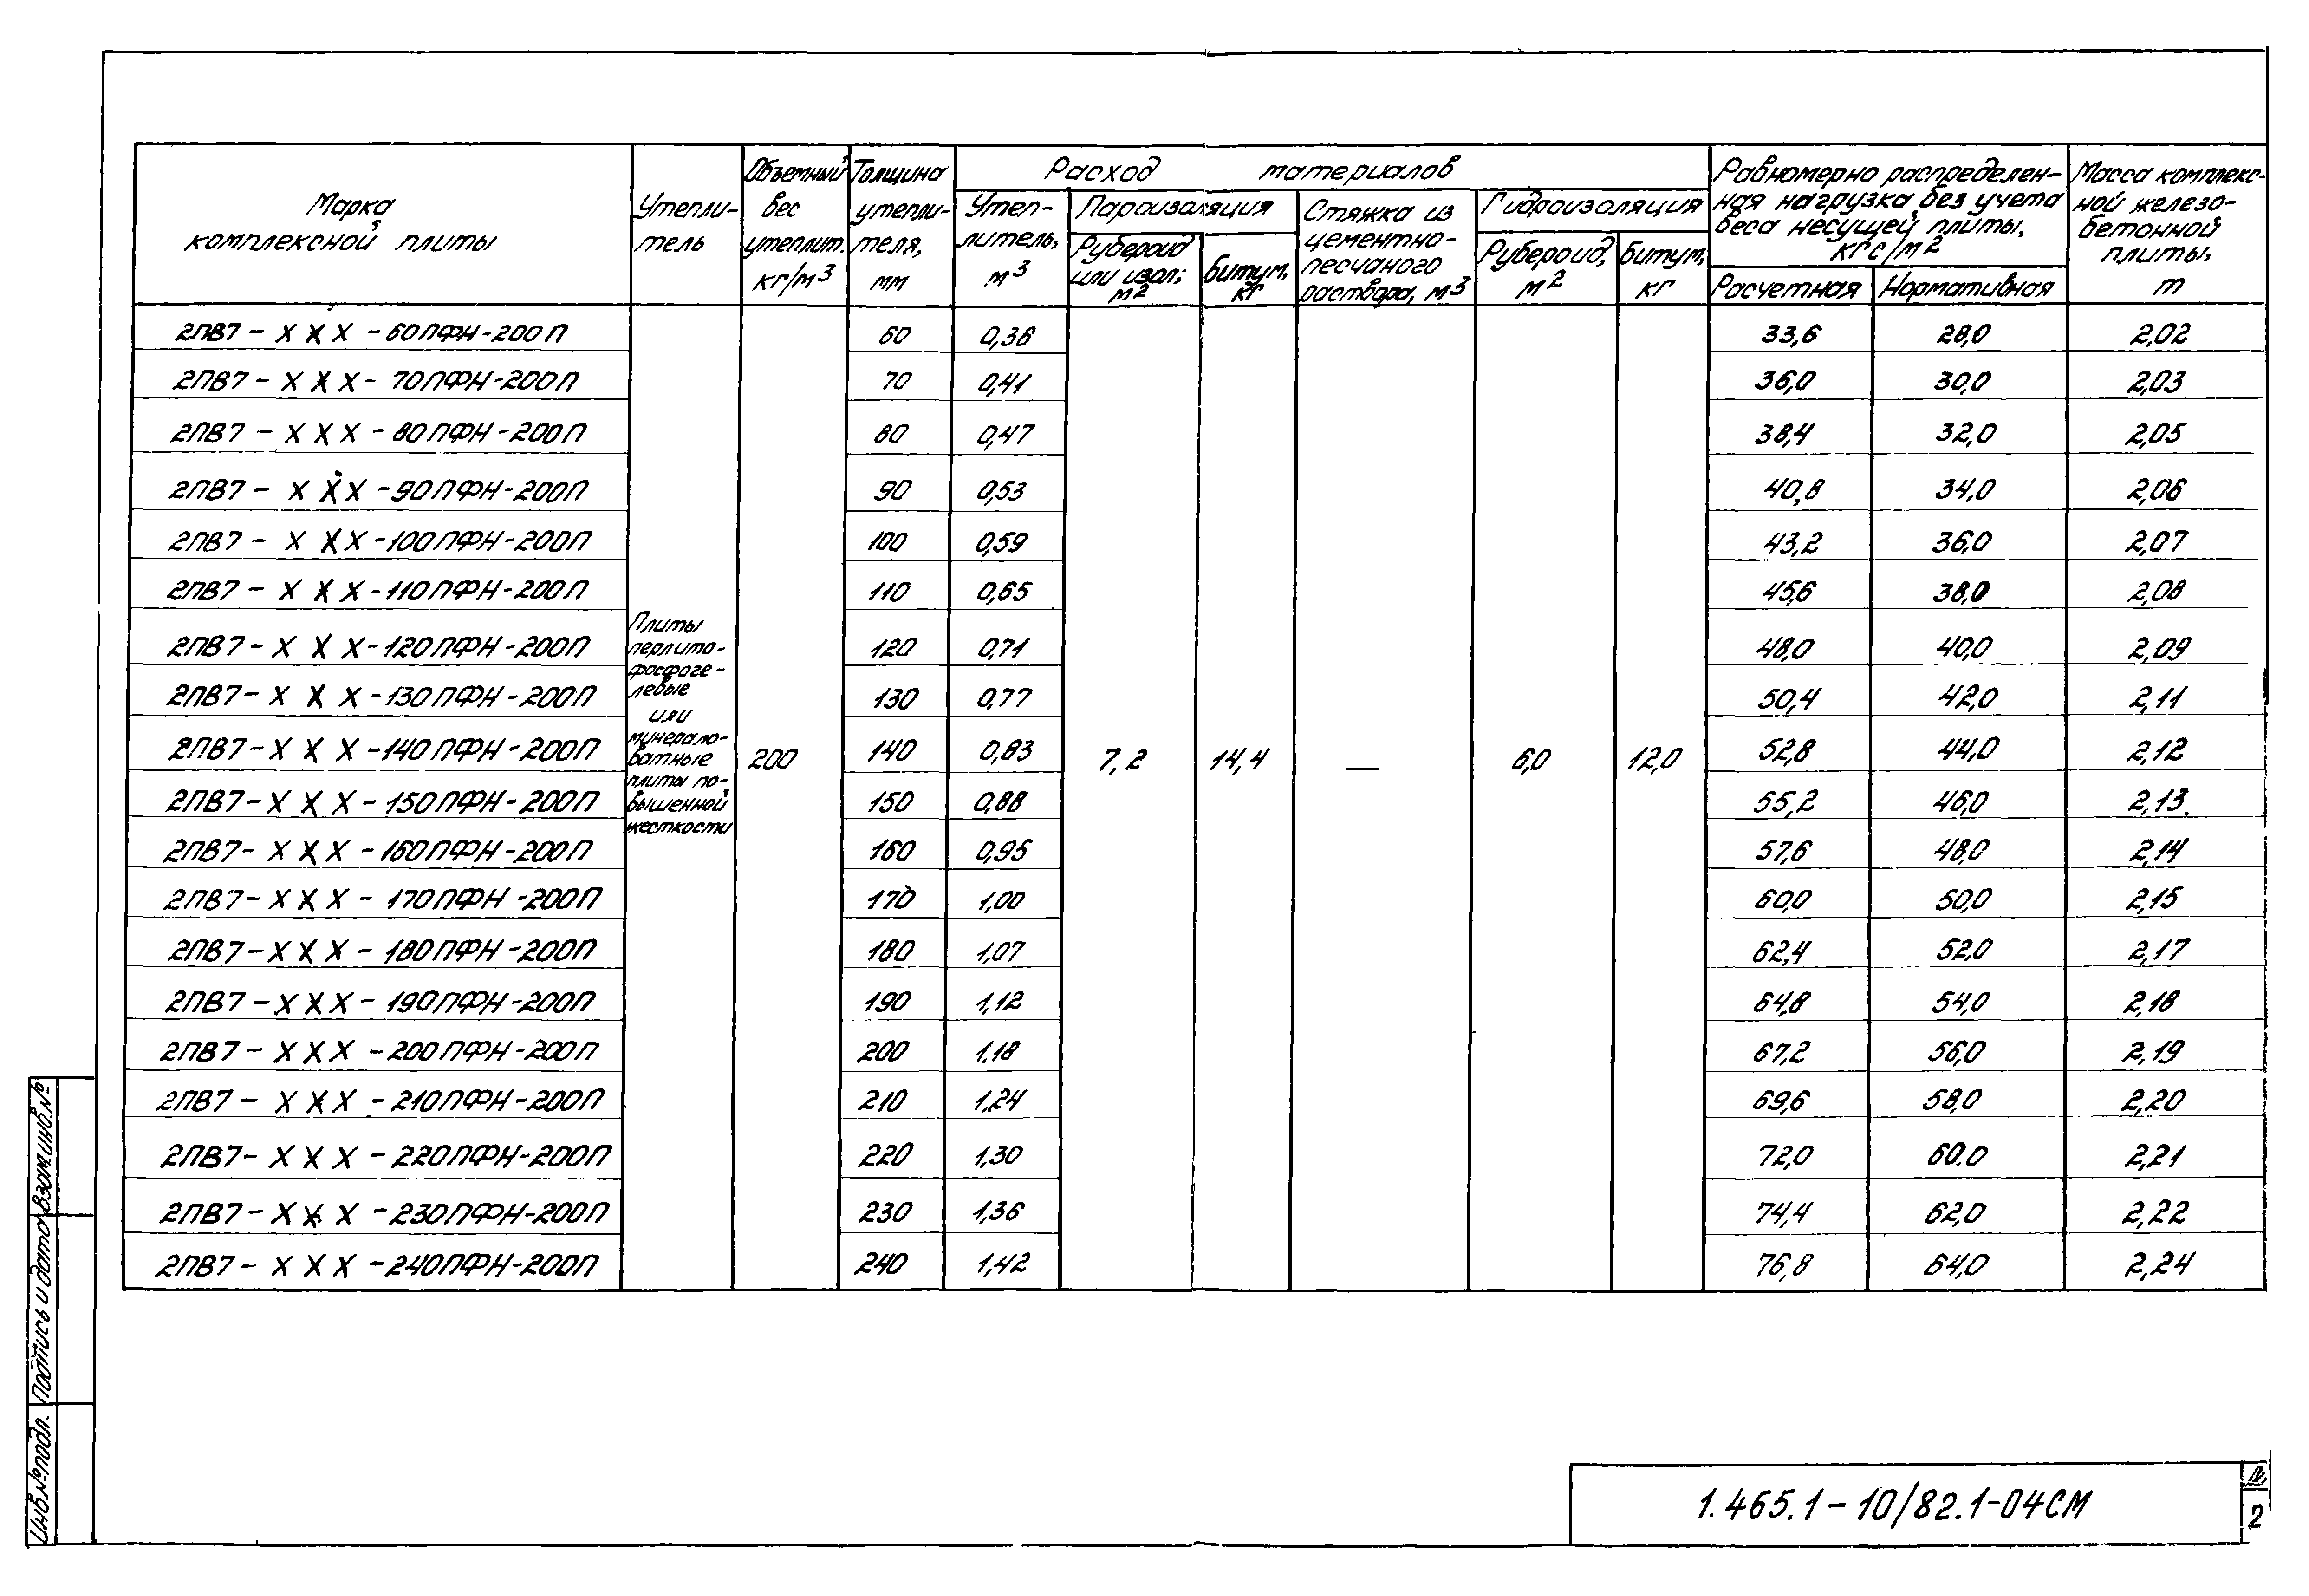 Марка комплексной плиты
Утепли-
тель
Объемный вес утеплит. кг/м³
Толщина утепли-
теля, мм
Расход материалов
Утеп-
литель, м³
Пароизоляция
Рубероид или изол; м²
Битум, кг
Стяжка из цементно-
песчаного раствора, м³
Гидроизоляция
Рубероид, м²
Битум, кг
Равномерно распределен-
ная нагрузка без учета веса несущей плиты, кгс/м²
Расчетная
Нормативная
Масса комплекс-
ной железо-
бетонной плиты, т
2ПВ7 - X X X - 60ПФН-200П 60 0,36 33,6 28,0 2,02
2ПВ7 - X X X - 70ПФН-200П 70 0,41 36,0 30,0 2,03
2ПВ7 - X X X - 80ПФН-200П 80 0,47 38,4 32,0 2,05
2ПВ7 - X X X - 90ПФН-200П 90 0,53 40,8 34,0 2,06
2ПВ7 - X X X - 100ПФН-200П 100 0,59 43,2 36,0 2,07
2ПВ7 - X X X - 110ПФН-200П 110 0,65 45,6 38,0 2,08
2ПВ7 - X X X - 120ПФН-200П 120 0,71 48,0 40,0 2,09
2ПВ7 - X X X - 130ПФН-200П 130 0,77 50,4 42,0 2,11
2ПВ7 - X X X - 140ПФН-200П 140 0,83 52,8 44,0 2,12
2ПВ7 - X X X - 150ПФН-200П 150 0,88 55,2 46,0 2,13
2ПВ7 - X X X - 160ПФН-200П 160 0,95 57,6 48,0 2,14
2ПВ7 - X X X - 170ПФН-200П 170 1,00 60,0 50,0 2,15
2ПВ7 - X X X - 180ПФН-200П 180 1,07 62,4 52,0 2,17
2ПВ7 - X X X - 190ПФН-200П 190 1,12 64,8 54,0 2,18
2ПВ7 - X X X - 200ПФН-200П 200 1.18 67,2 56,0 2,19
2ПВ7 - X X X - 210ПФН-200П 210 1.24 69,6 58,0 2,20
2ПВ7 - X X X - 220ПФН-200П 220 1,30 72,0 60.0 2,21
2ПВ7 - X X X - 230ПФН-200П 230 1,36 74,4 62,0 2,22
2ПВ7 - X X X - 240ПФН-200П 240 1,42 76,8 64,0 2,24
Плиты
перлито-
фосфоге-
левые
или
минерало-
ватные
плиты по-
вышенной
жесткости
200
7,2 14,4 — 6,0 12,0
Инв.№подл. Подпись и дата Взам.инв.№
1.465.1-10/82.1-04СМ
2